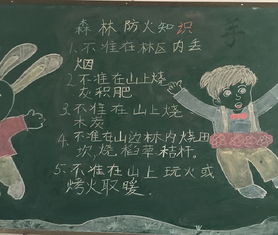 森林防火知识
1.不准在林区内丢
烟
2.不准在山上烧
灰积肥
3.不准在山上烧
木炭
4.不准在山边林内烧田
坎,烧稻草秸杆。
5.不准在山上玩火或
烤火取暖.